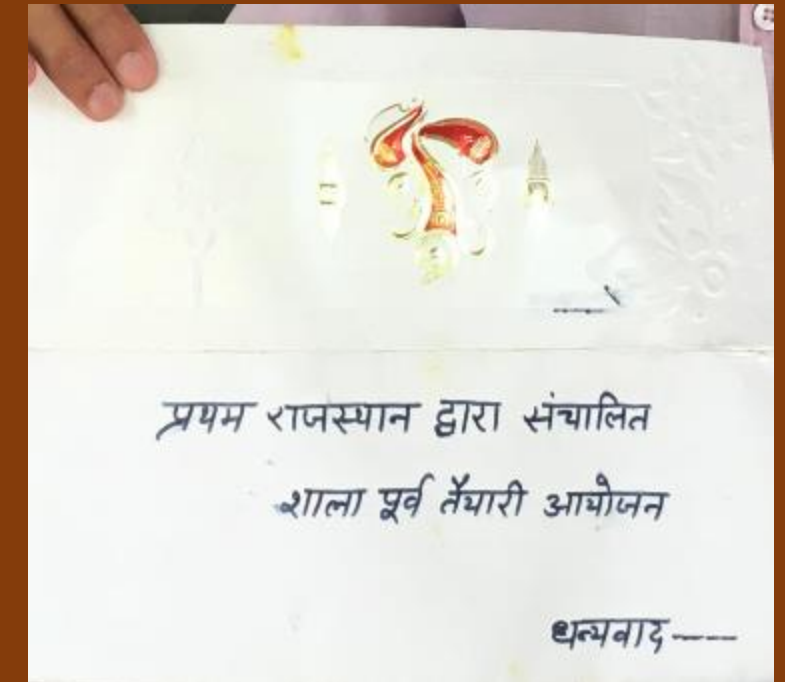 प्रथम राजस्थान द्वारा संचालित
शाला पूर्व तैयारी आयोजन
धन्यवाद----